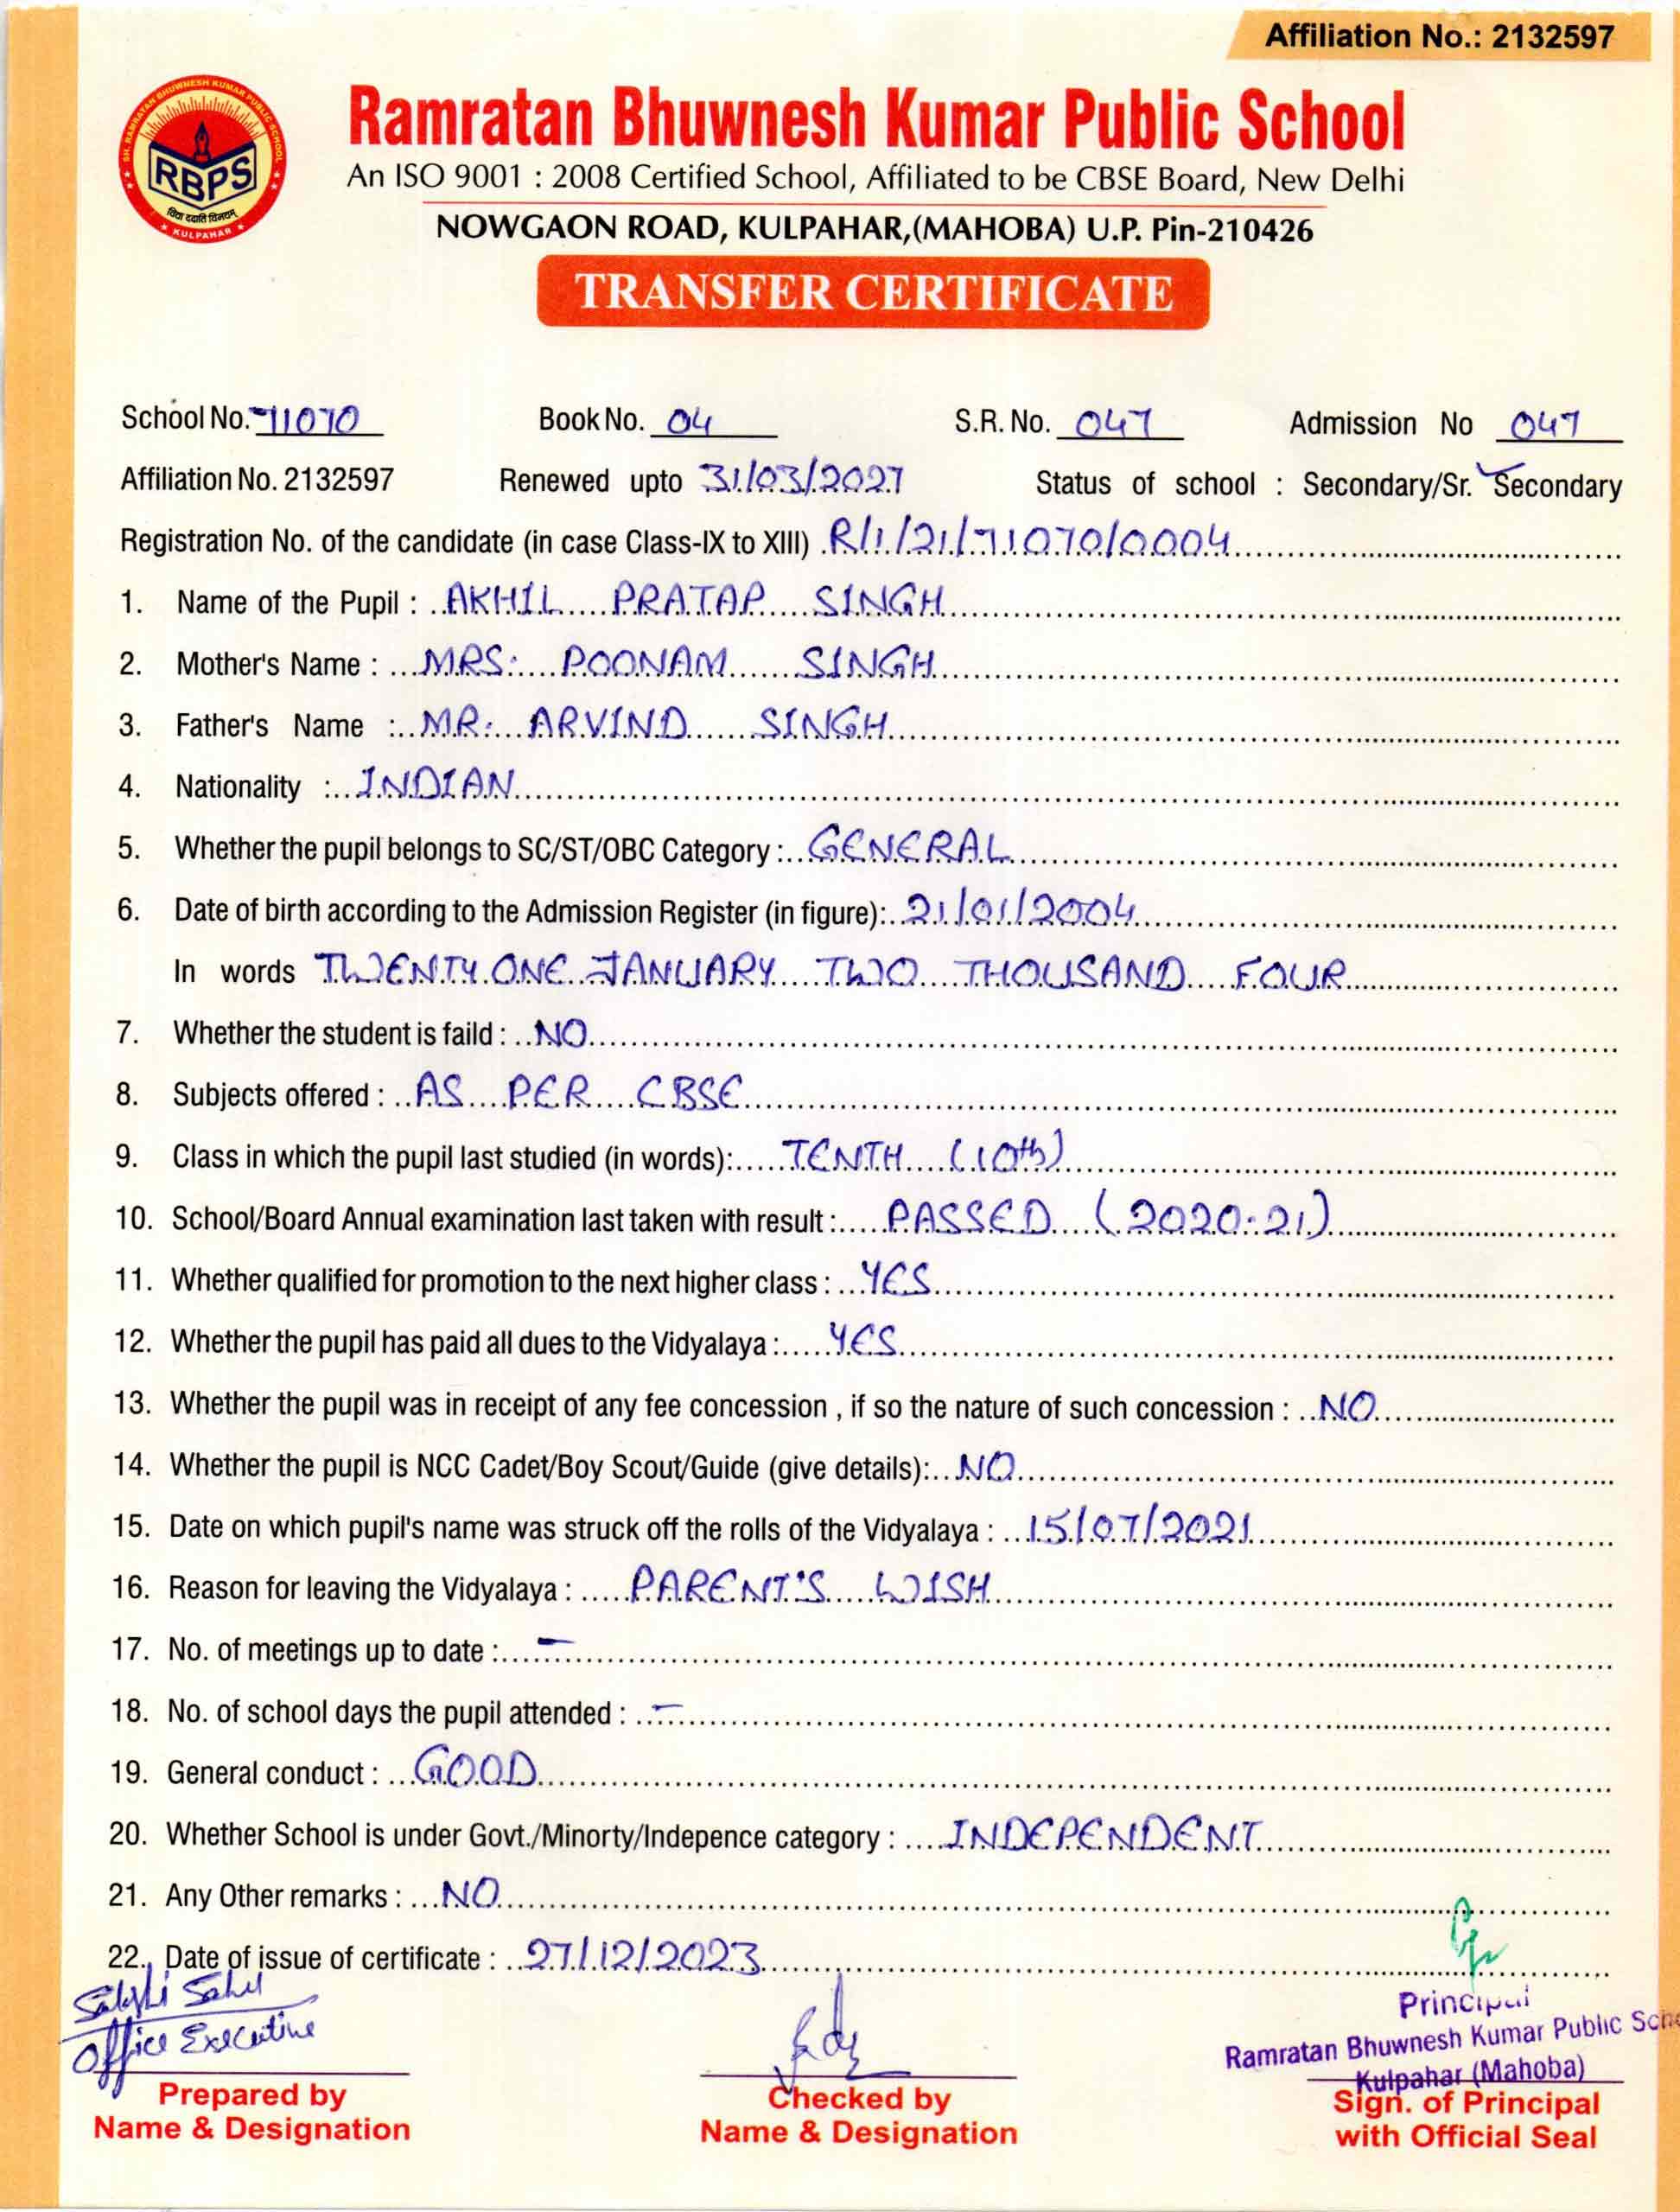 Affiliation No.: 2132597
SH. RAMRATAN BHUWNESH KUMAR PUBLIC SCHOOL
RBPS
विद्या ददाति विनयम्
KULPAHAR
Ramratan Bhuwnesh Kumar Public School
An ISO 9001 : 2008 Certified School, Affiliated to be CBSE Board, New Delhi
NOWGAON ROAD, KULPAHAR,(MAHOBA) U.P. Pin-210426
TRANSFER CERTIFICATE
School No. 71070 Book No. 04 S.R. No. 047 Admission No 047
Affiliation No. 2132597 Renewed upto 31/03/2027 Status of school : Secondary/Sr. Secondary
Registration No. of the candidate (in case Class-IX to XIII) R/1/21/71070/0004
1. Name of the Pupil : AKHIL PRATAP SINGH
2. Mother's Name : MRS. POONAM SINGH
3. Father's Name : MR. ARVIND SINGH
4. Nationality : INDIAN
5. Whether the pupil belongs to SC/ST/OBC Category : GENERAL
6. Date of birth according to the Admission Register (in figure): 21/01/2004
In words TWENTY ONE JANUARY TWO THOUSAND FOUR
7. Whether the student is faild : NO
8. Subjects offered : AS PER CBSE
9. Class in which the pupil last studied (in words): TENTH (10th)
10. School/Board Annual examination last taken with result : PASSED (2020-21)
11. Whether qualified for promotion to the next higher class : YES
12. Whether the pupil has paid all dues to the Vidyalaya : YES
13. Whether the pupil was in receipt of any fee concession , if so the nature of such concession : NO
14. Whether the pupil is NCC Cadet/Boy Scout/Guide (give details): NO
15. Date on which pupil's name was struck off the rolls of the Vidyalaya : 15/07/2021
16. Reason for leaving the Vidyalaya : PARENT'S WISH
17. No. of meetings up to date : -
18. No. of school days the pupil attended : -
19. General conduct : GOOD
20. Whether School is under Govt./Minorty/Indepence category : INDEPENDENT
21. Any Other remarks : NO
22. Date of issue of certificate : 27/12/2023
Sakshi Sahu
Office Executive
Principal
Ramratan Bhuwnesh Kumar Public Scho
Kulpahar (Mahoba)
Prepared by Checked by Sign. of Principal
Name & Designation Name & Designation with Official Seal